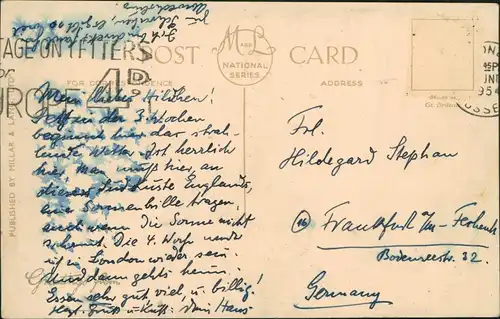 AGE ON LETTERS
4D
EUROPE
POST CARD
M & L
NATIONAL SERIES
FOR CORRESPONDENCE
ADDRESS
PUBLISHED BY MILLAR & LANG
1954
SUSSEX
Mein liebes Hildchen!
Jetzt in der 3. Woche
beginnt hier das strah-
lende Wetter. Ist herrlich
hier, man muß hier, an
dieser Südküste Englands,
eine Sonnenbrille tragen,
auch wenn die Sonne nicht
scheint. Die 4. Woche werde
ich in London wieder sein.
Und dann gehts heim.
Essen sehr gut viel u. billig!
Hzl. Gruß u. Kuß: Dein Hans
Frl.
Hildegard Stephan
(16) Frankfurt/M-Fechenh.
Bodenseestr. 32.
Germany